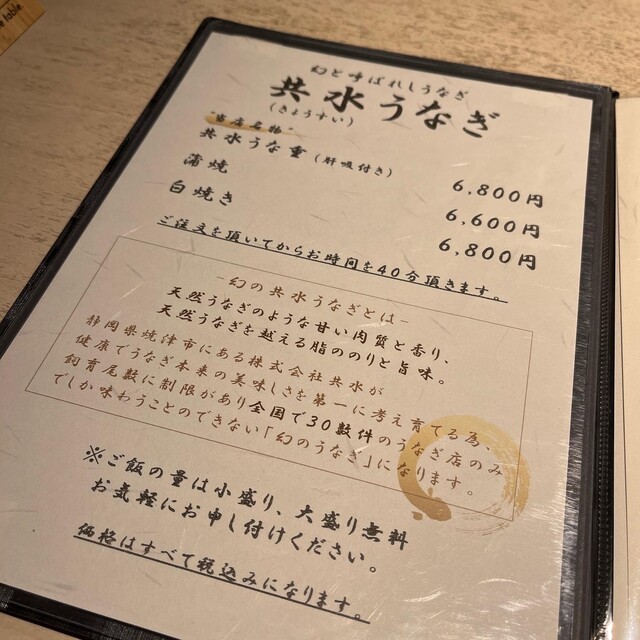 table
幻と呼ばれしうなぎ
共水うなぎ
(きょうすい)
"当店名物"
共水うな重(肝吸付き) 6,800円
蒲焼 6,600円
白焼き 6,800円
ご注文を頂いてからお時間を40分頂きます。
-幻の共水うなぎとは-
天然うなぎのような甘い肉質と香り、
天然うなぎを越える脂ののりと旨味。
静岡県焼津市にある株式会社共水が
健康でうなぎ本来の美味しさを第一に考え育てる為、
飼育尾数に制限があり全国で30数件のうなぎ店のみ
でしか味わうことのできない「幻のうなぎ」になります。
※ご飯の量は小盛り、大盛り無料
お気軽にお申し付けください。
価格はすべて税込みになります。